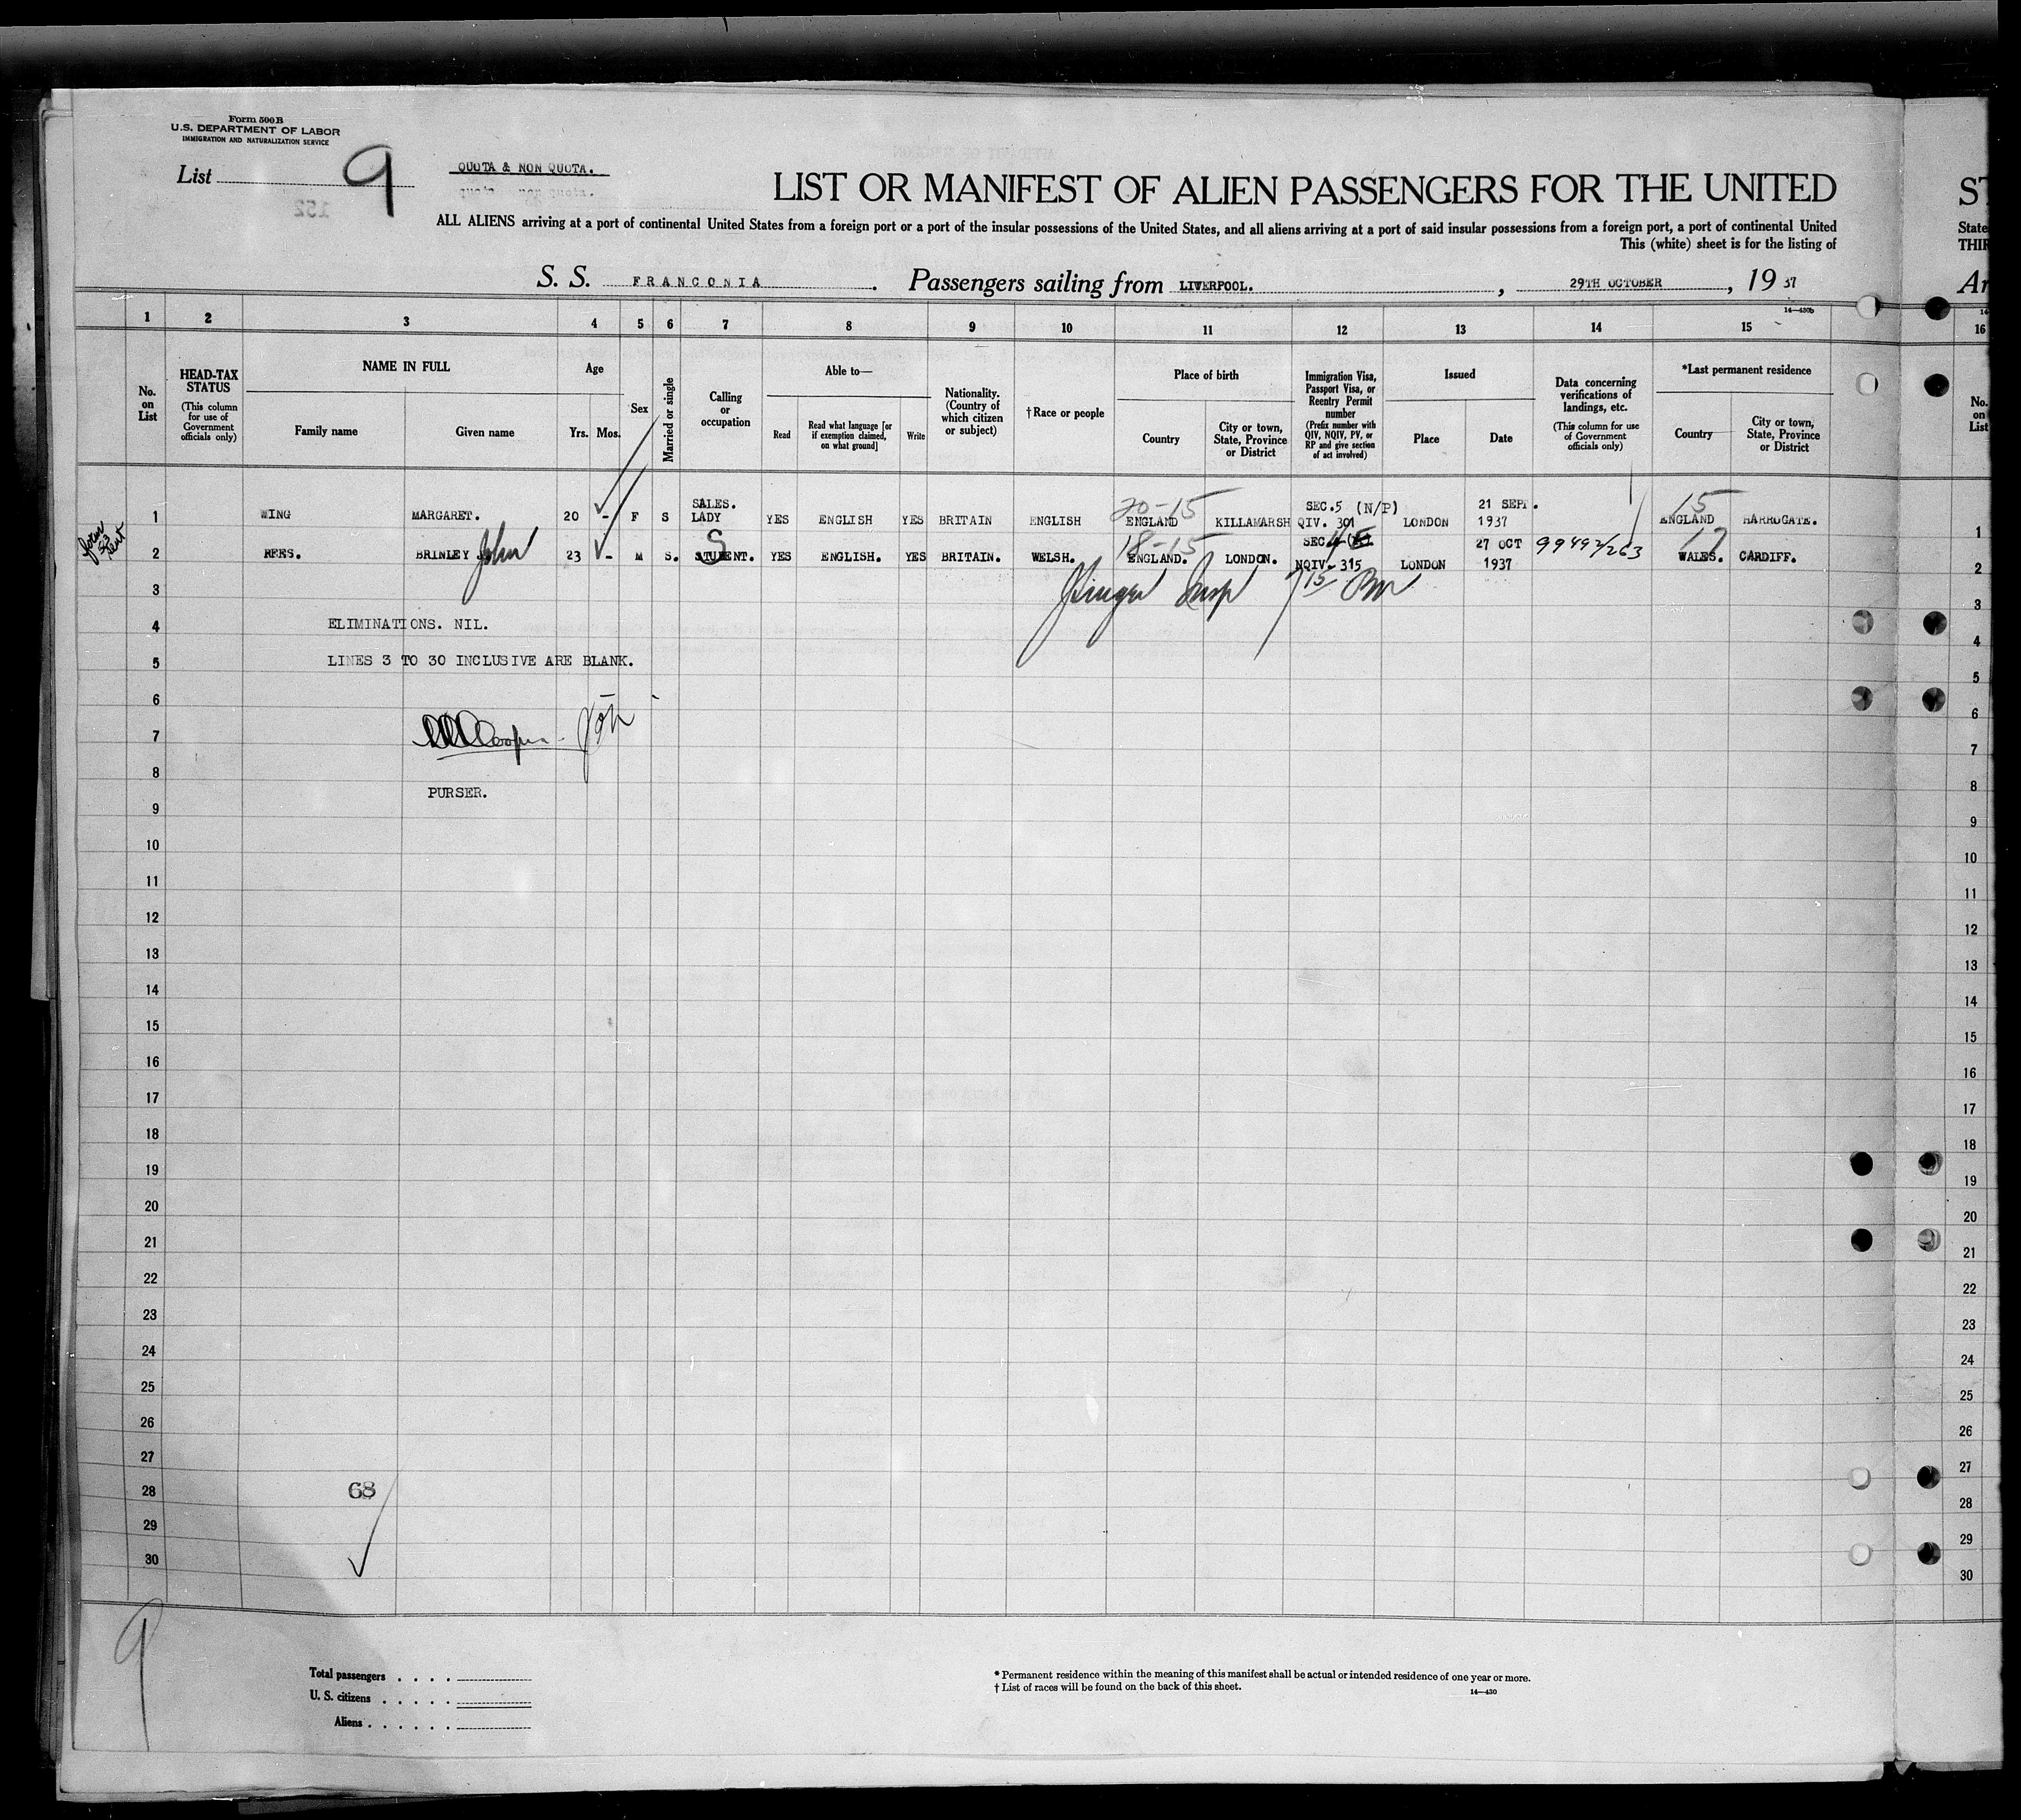 Form 500B
U.S. DEPARTMENT OF LABOR
IMMIGRATION AND NATURALIZATION SERVICE
List 9
QUOTA & NON QUOTA.
152
LIST OR MANIFEST OF ALIEN PASSENGERS FOR THE UNITED
ST
ALL ALIENS arriving at a port of continental United States from a foreign port or a port of the insular possessions of the United States, and all aliens arriving at a port of said insular possessions from a foreign port, a port of continental United
State
This (white) sheet is for the listing of
THIR
S. S. FRANCONIA. Passengers sailing from LIVERPOOL. , 29TH OCTOBER , 19 37
Ar
14—430b
1 2 3 4 5 6 7 8 9 10 11 12 13 14 15 16
No. on List
HEAD-TAX STATUS (This column for use of Government officials only)
NAME IN FULL
Family name
Given name
Age
Yrs. Mos.
Sex
Married or single
Calling or occupation
Able to—
Read
Read what language [or if exemption claimed, on what ground]
Write
Nationality. (Country of which citizen or subject)
†Race or people
Place of birth
Country
City or town, State, Province or District
Immigration Visa, Passport Visa, or Reentry Permit number (Prefix number with QIV, NQIV, PV, or RP and give section of act involved)
Issued
Place
Date
Data concerning verifications of landings, etc. (This column for use of Government officials only)
*Last permanent residence
Country
City or town, State, Province or District
No. on List
1 WING MARGARET. 20 - F S SALES. LADY YES ENGLISH YES BRITAIN ENGLISH 20-15 ENGLAND KILLAMARSH SEC.5 (N/P) QIV. 301 LONDON 21 SEPT. 1937 15 ENGLAND HARROGATE. 1
2 REES. BRINLEY John 23 - M S. STUDENT. S YES ENGLISH. YES BRITAIN. WELSH. 18-15 ENGLAND. LONDON. SEC 4 E NQIV- 315 LONDON 27 OCT 1937 99492/263 17 WALES. CARDIFF. 2
3 3
4 ELIMINATIONS. NIL. 4
5 LINES 3 TO 30 INCLUSIVE ARE BLANK. 5
6 6
7 7
8 PURSER. 8
9 9
10 10
11 11
12 12
13 13
14 14
15 15
16 16
17 17
18 18
19 19
20 20
21 21
22 22
23 23
24 24
25 25
26 26
27 27
28 68 28
29 29
30 30
9
Total passengers . . . .
U. S. citizens . . . . .
Aliens . . . . . .
* Permanent residence within the meaning of this manifest shall be actual or intended residence of one year or more.
† List of races will be found on the back of this sheet.
14—430